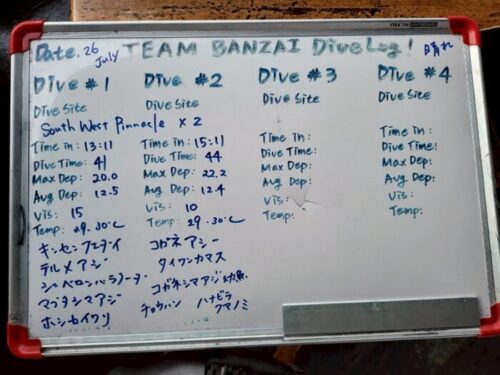 Date. 26 July TEAM BANZAI Dive Log! 晴れ
Dive #1
Dive Site
South West Pinnacle x 2
Time in: 13:11
Dive Time: 41
Max Dep: 20.0
Avg Dep: 12.5
Vis: 15
Temp: 29.30℃
キンセンフエダイ
テルメアジ
シェベロンバラクーダ
マブタシマアジ
ホシカイワリ
Dive #2
Dive Site
Time in: 15:11
Dive Time: 44
Max Dep: 22.2
Avg Dep: 12.4
Vis: 10
Temp: 29.30℃
コガネアジ
タイワンカマス
コガネシマアジ幼魚
チョウハン ハナビラクマノミ
Dive #3
Dive Site
Time in:
Dive Time:
Max Dep:
Avg Dep:
Vis:
Temp:
Dive #4
Dive Site
Time in:
Dive Time:
Max Dep:
Avg Dep:
Vis:
Temp: